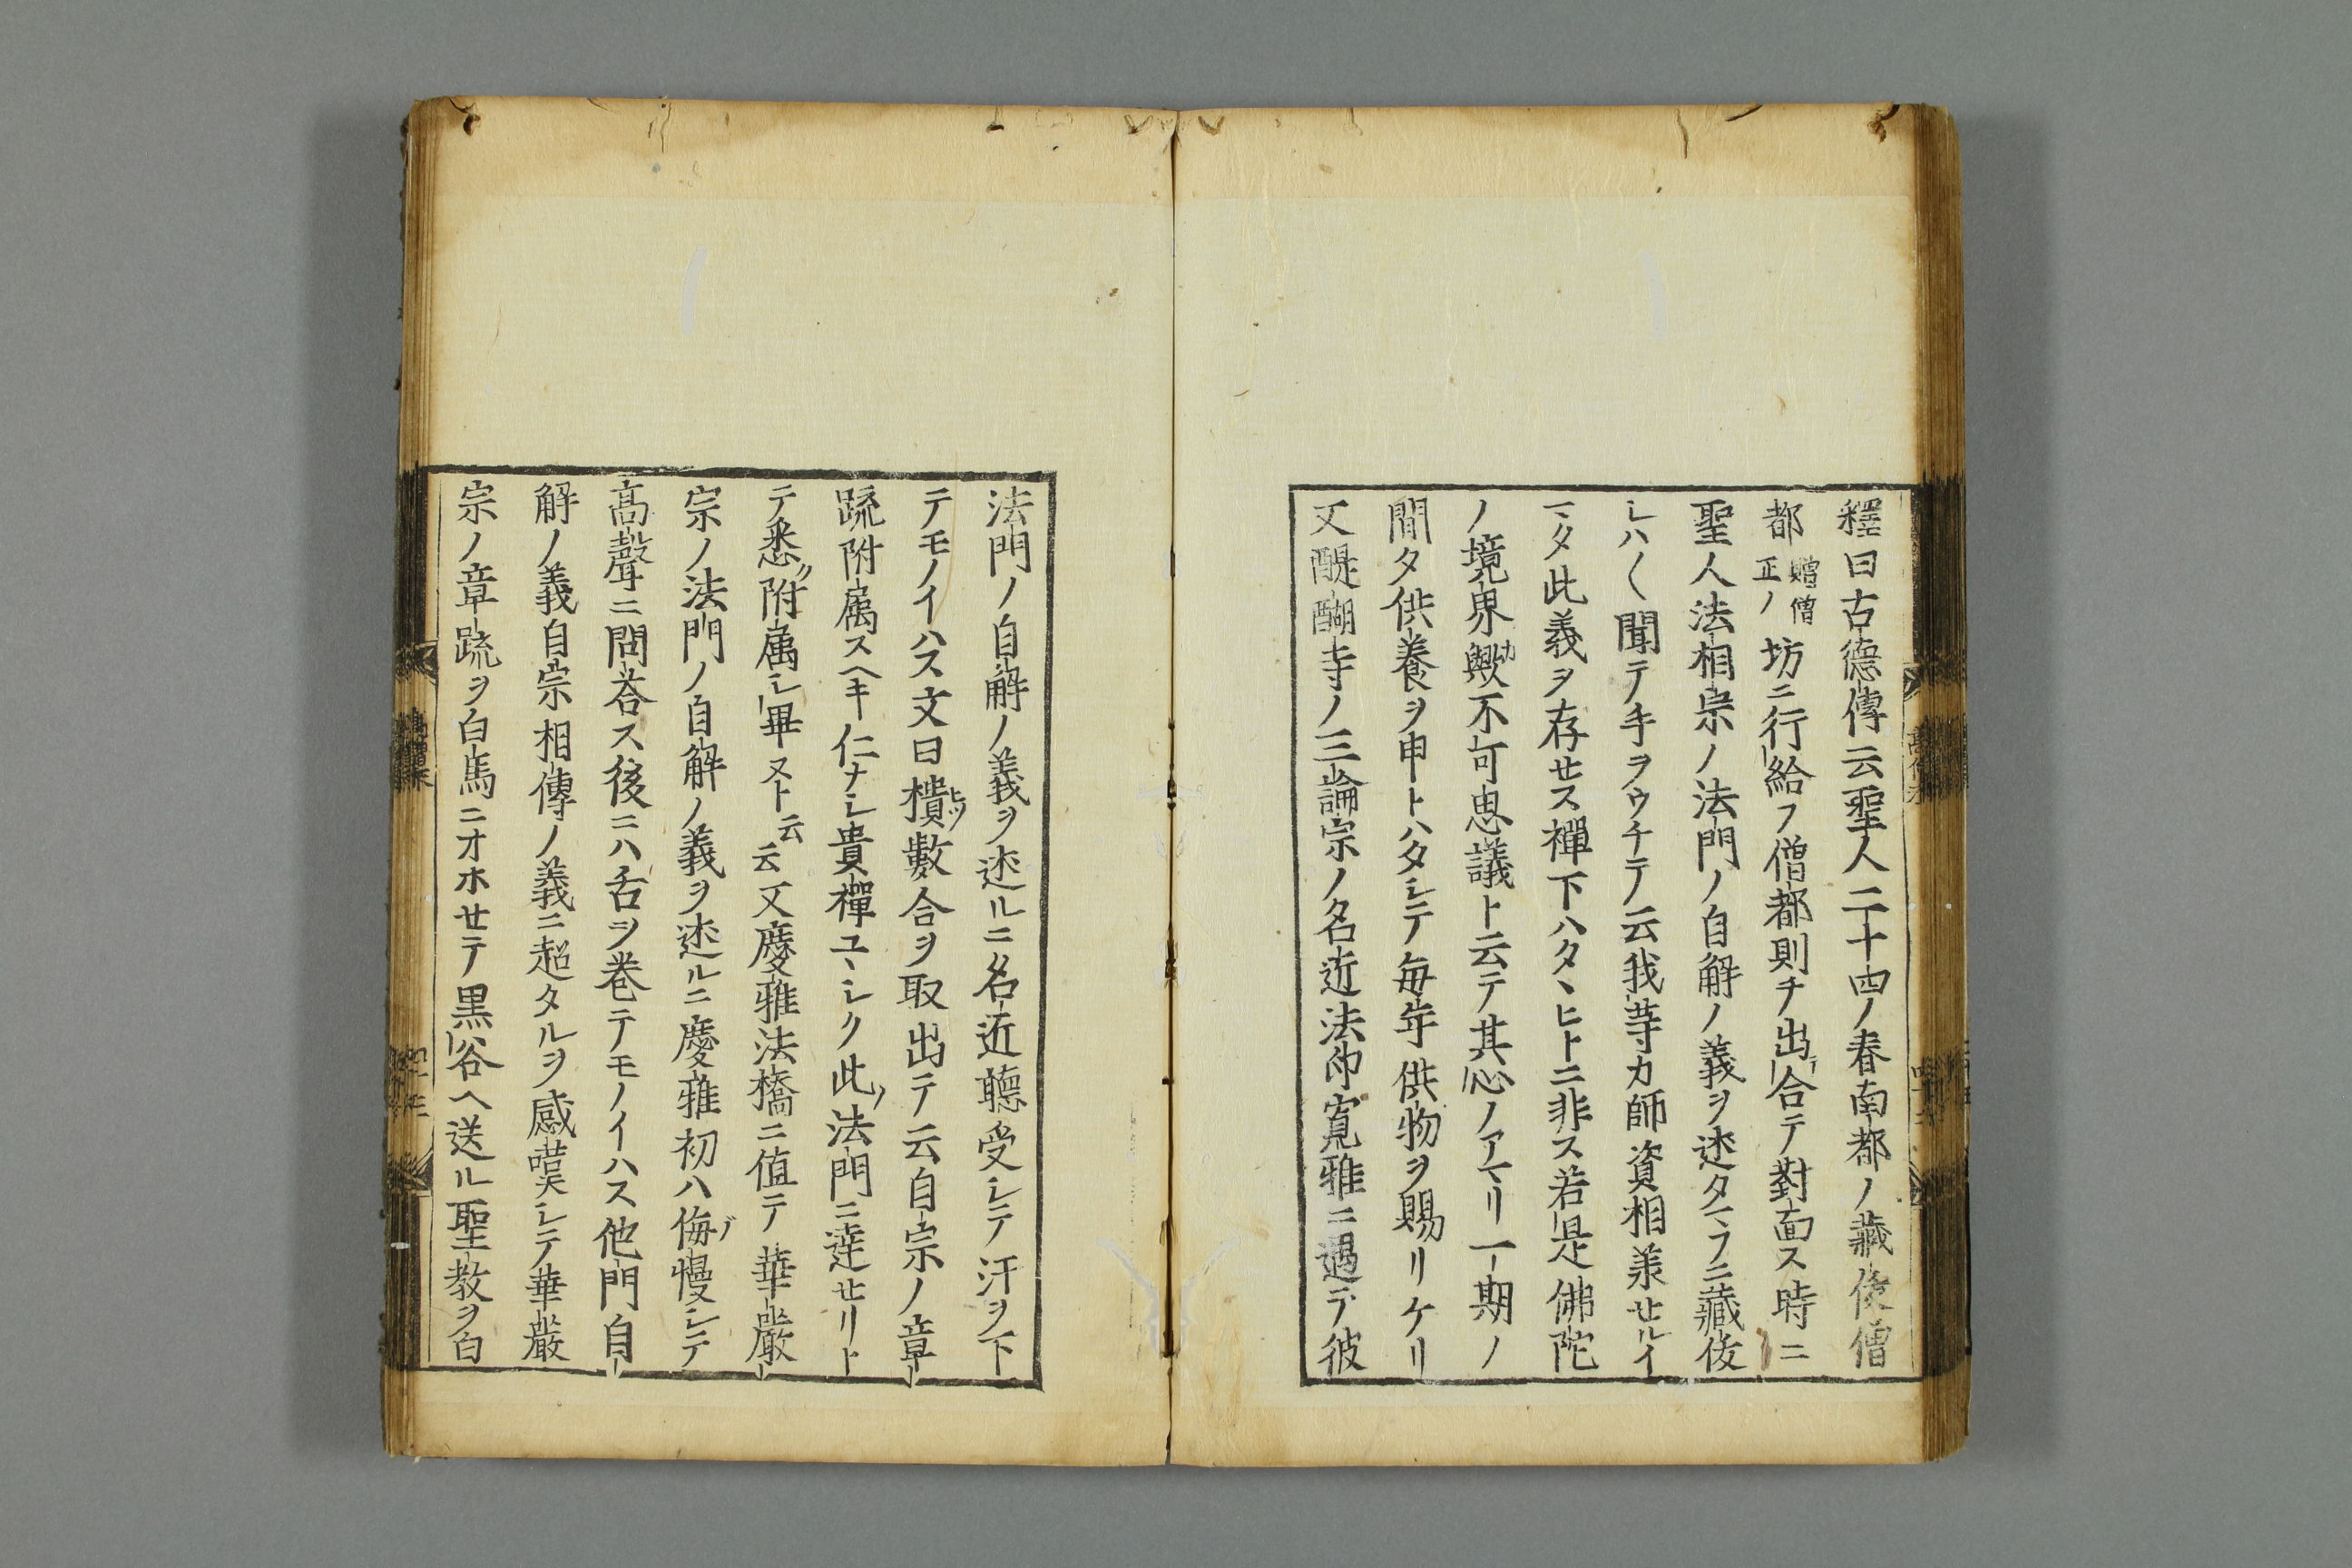 釋曰古德傳云聖人二十四ノ春南都ノ藏俊僧
都贈僧正ノ坊ニ行給フ僧都則チ出合テ對面ス時ニ
聖人法相宗ノ法門ノ自解ノ義ヲ述タマフニ藏俊
シハ〱聞テ手ヲウチテ云我等カ師資相羕セルイ
マタ此義ヲ存セス禪下ハタヽヒトニ非ス若是佛陀
ノ境界歟カ不可思議ト云テ其心ノアマリ一期ノ
間タ供養ヲ申トハタシテ毎年供物ヲ賜リケリ
又醍醐寺ノ三論宗ノ名近法印寛雅ニ遇テ彼
法門ノ自解ノ義ヲ述ルニ名近聽受シテ汗ヲ下
テモノイハス文曰樻ヒツ數合ヲ取出テ云自宗ノ章
䟽附属スヘキ仁ナシ貴禪ユヽシク此ノ法門ニ達セリト
テ悉ク附属シ畢ヌト云云又慶雅法橋ニ値テ華嚴
宗ノ法門ノ自解ノ義ヲ述ルニ慶雅初ハ侮慢シテ
髙聲ニ問荅ス後ニハ舌ヲ巻テモノイハス他門自
解ノ義自宗相傳ノ義ニ超タルヲ感嘆シテ華嚴
宗ノ章䟽ヲ白馬ニオホセテ黒谷ヘ送ル聖教ヲ白